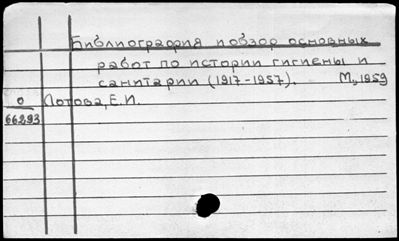 Библиография и обзор основных
работ по истории гигиены и
санитарии (1917-1957). М., 1959
О Лотова, Е.И.
66293